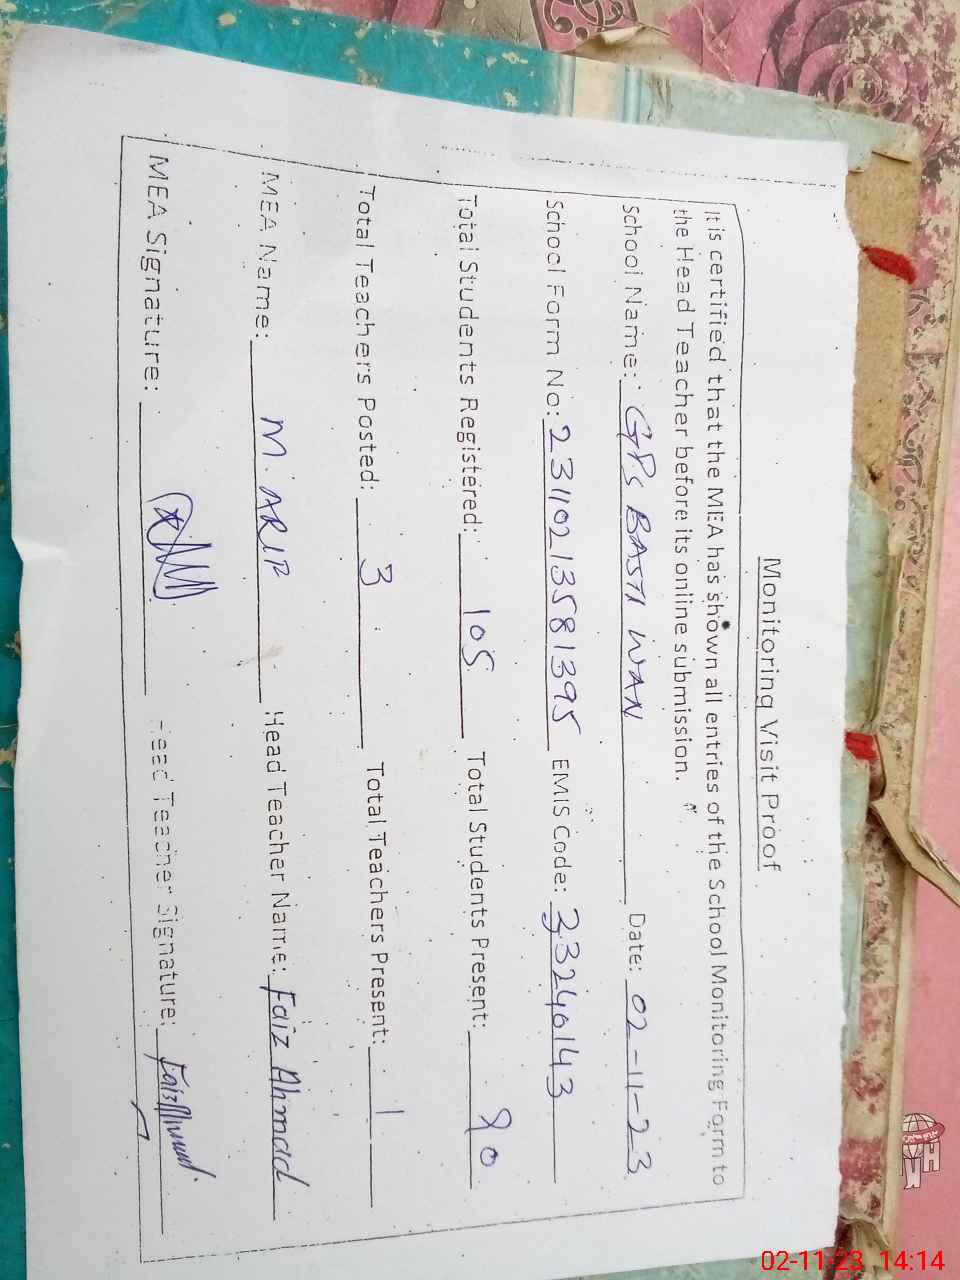 Monitoring Visit Proof
It is certified that the MEA has shown all entries of the School Monitoring Form to
the Head Teacher before its online submission.
School Name: GPS BASTI WAN Date: 02-11-23
School Form No: 2311021358 1395 EMIS Code: 33240143
Total Students Registered: 105 Total Students Present: 90
Total Teachers Posted: 3 Total Teachers Present: 1
MEA Name: M. ARIF Head Teacher Name: Faiz Ahmad
MEA Signature: Head Teacher Signature:
02-11-23 14:14